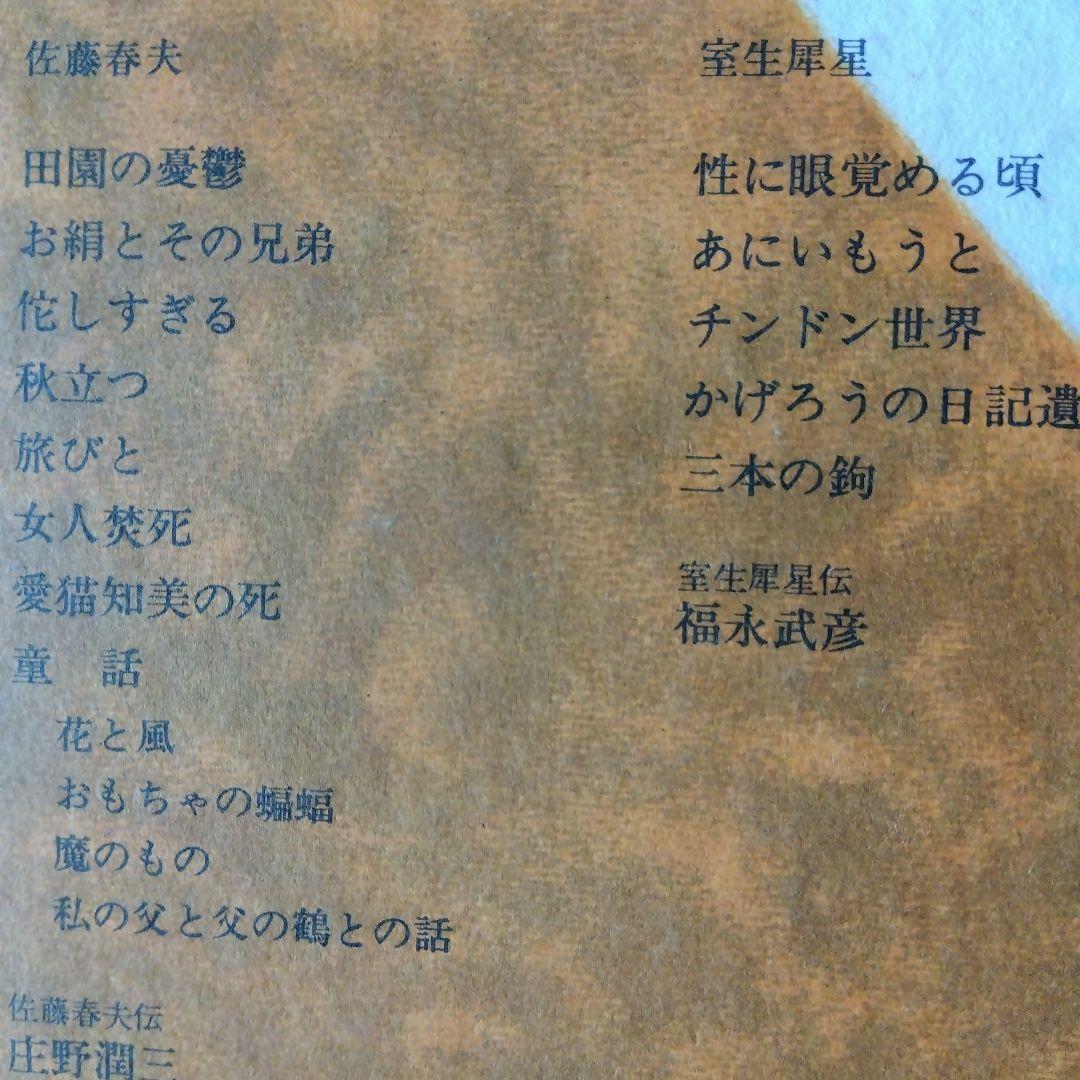 佐藤春夫
田園の憂鬱
お絹とその兄弟
侘しすぎる
秋立つ
旅びと
女人焚死
愛猫知美の死
童　話
花と風
おもちゃの蝙蝠
魔のもの
私の父と父の鶴との話
佐藤春夫伝
庄野潤三
室生犀星
性に眼覚める頃
あにいもうと
チンドン世界
かげろうの日記遺
三本の鉤
室生犀星伝
福永武彦